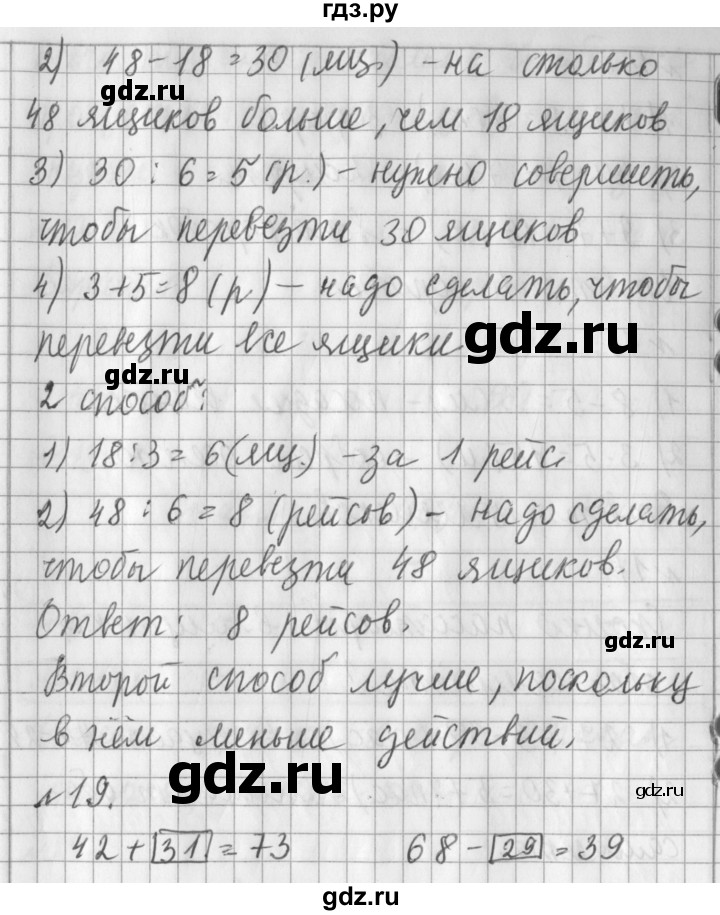 гдз.ру
2) 48-18=30 (ящ.) - на столько
gdz.ru
48 ящиков больше, чем 18 ящиков
3) 30 : 6 = 5 (р.) - нужно совершить,
чтобы перевезти 30 ящиков
4) 3+5=8 (р) - надо сделать, чтобы
перевезти все ящики
gdz.ru
gdz.ru
2 способ:
1) 18:3=6 (ящ.) - за 1 рейс
2) 48 : 6 = 8 (рейсов) - надо сделать,
gdz.ru
чтобы перевезти 48 ящиков.
Ответ: 8 рейсов.
gdz.ru
Второй способ лучше, поскольку
в нём меньше действий.
gdz.ru
gdz.ru
№19.
42+31=73 68-29=39
gdz.ru